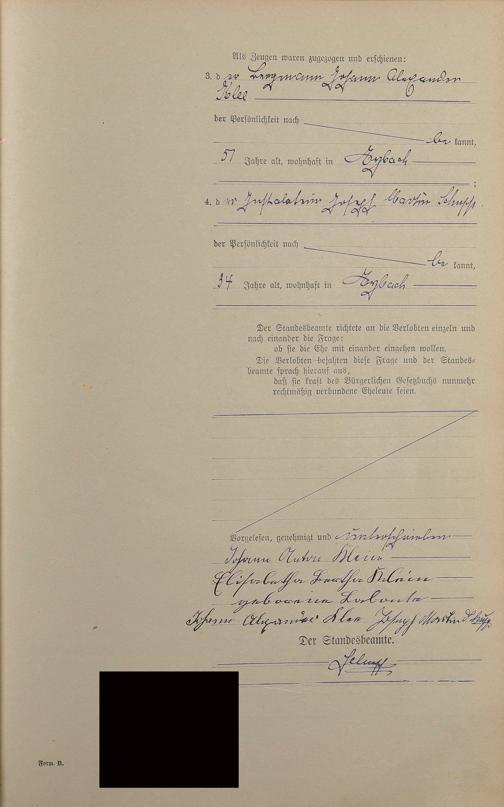 Als Zeugen waren zugezogen und erschienen:
3. der Bergmann Johann Alexander
Klee
der Persönlichkeit nach
bekannt,
51 Jahre alt, wohnhaft in Eybach
;
4. der Installateur Joseph Martin
der Persönlichkeit nach
bekannt,
34 Jahre alt, wohnhaft in Eybach
Der Standesbeamte richtete an die Verlobten einzeln und
nach einander die Frage:
ob sie die Ehe mit einander eingehen wollen.
Die Verlobten bejahten diese Frage und der Standes-
beamte sprach hierauf aus,
daß sie kraft des Bürgerlichen Gesetzbuchs nunmehr
rechtmäßig verbundene Eheleute seien.
Vorgelesen, genehmigt und unterschrieben
Johann Anton Klein
Elisabetha Bertha Klein
geborene
Johann Alexander Klee Joseph Martin
Der Standesbeamte.
Form. B.